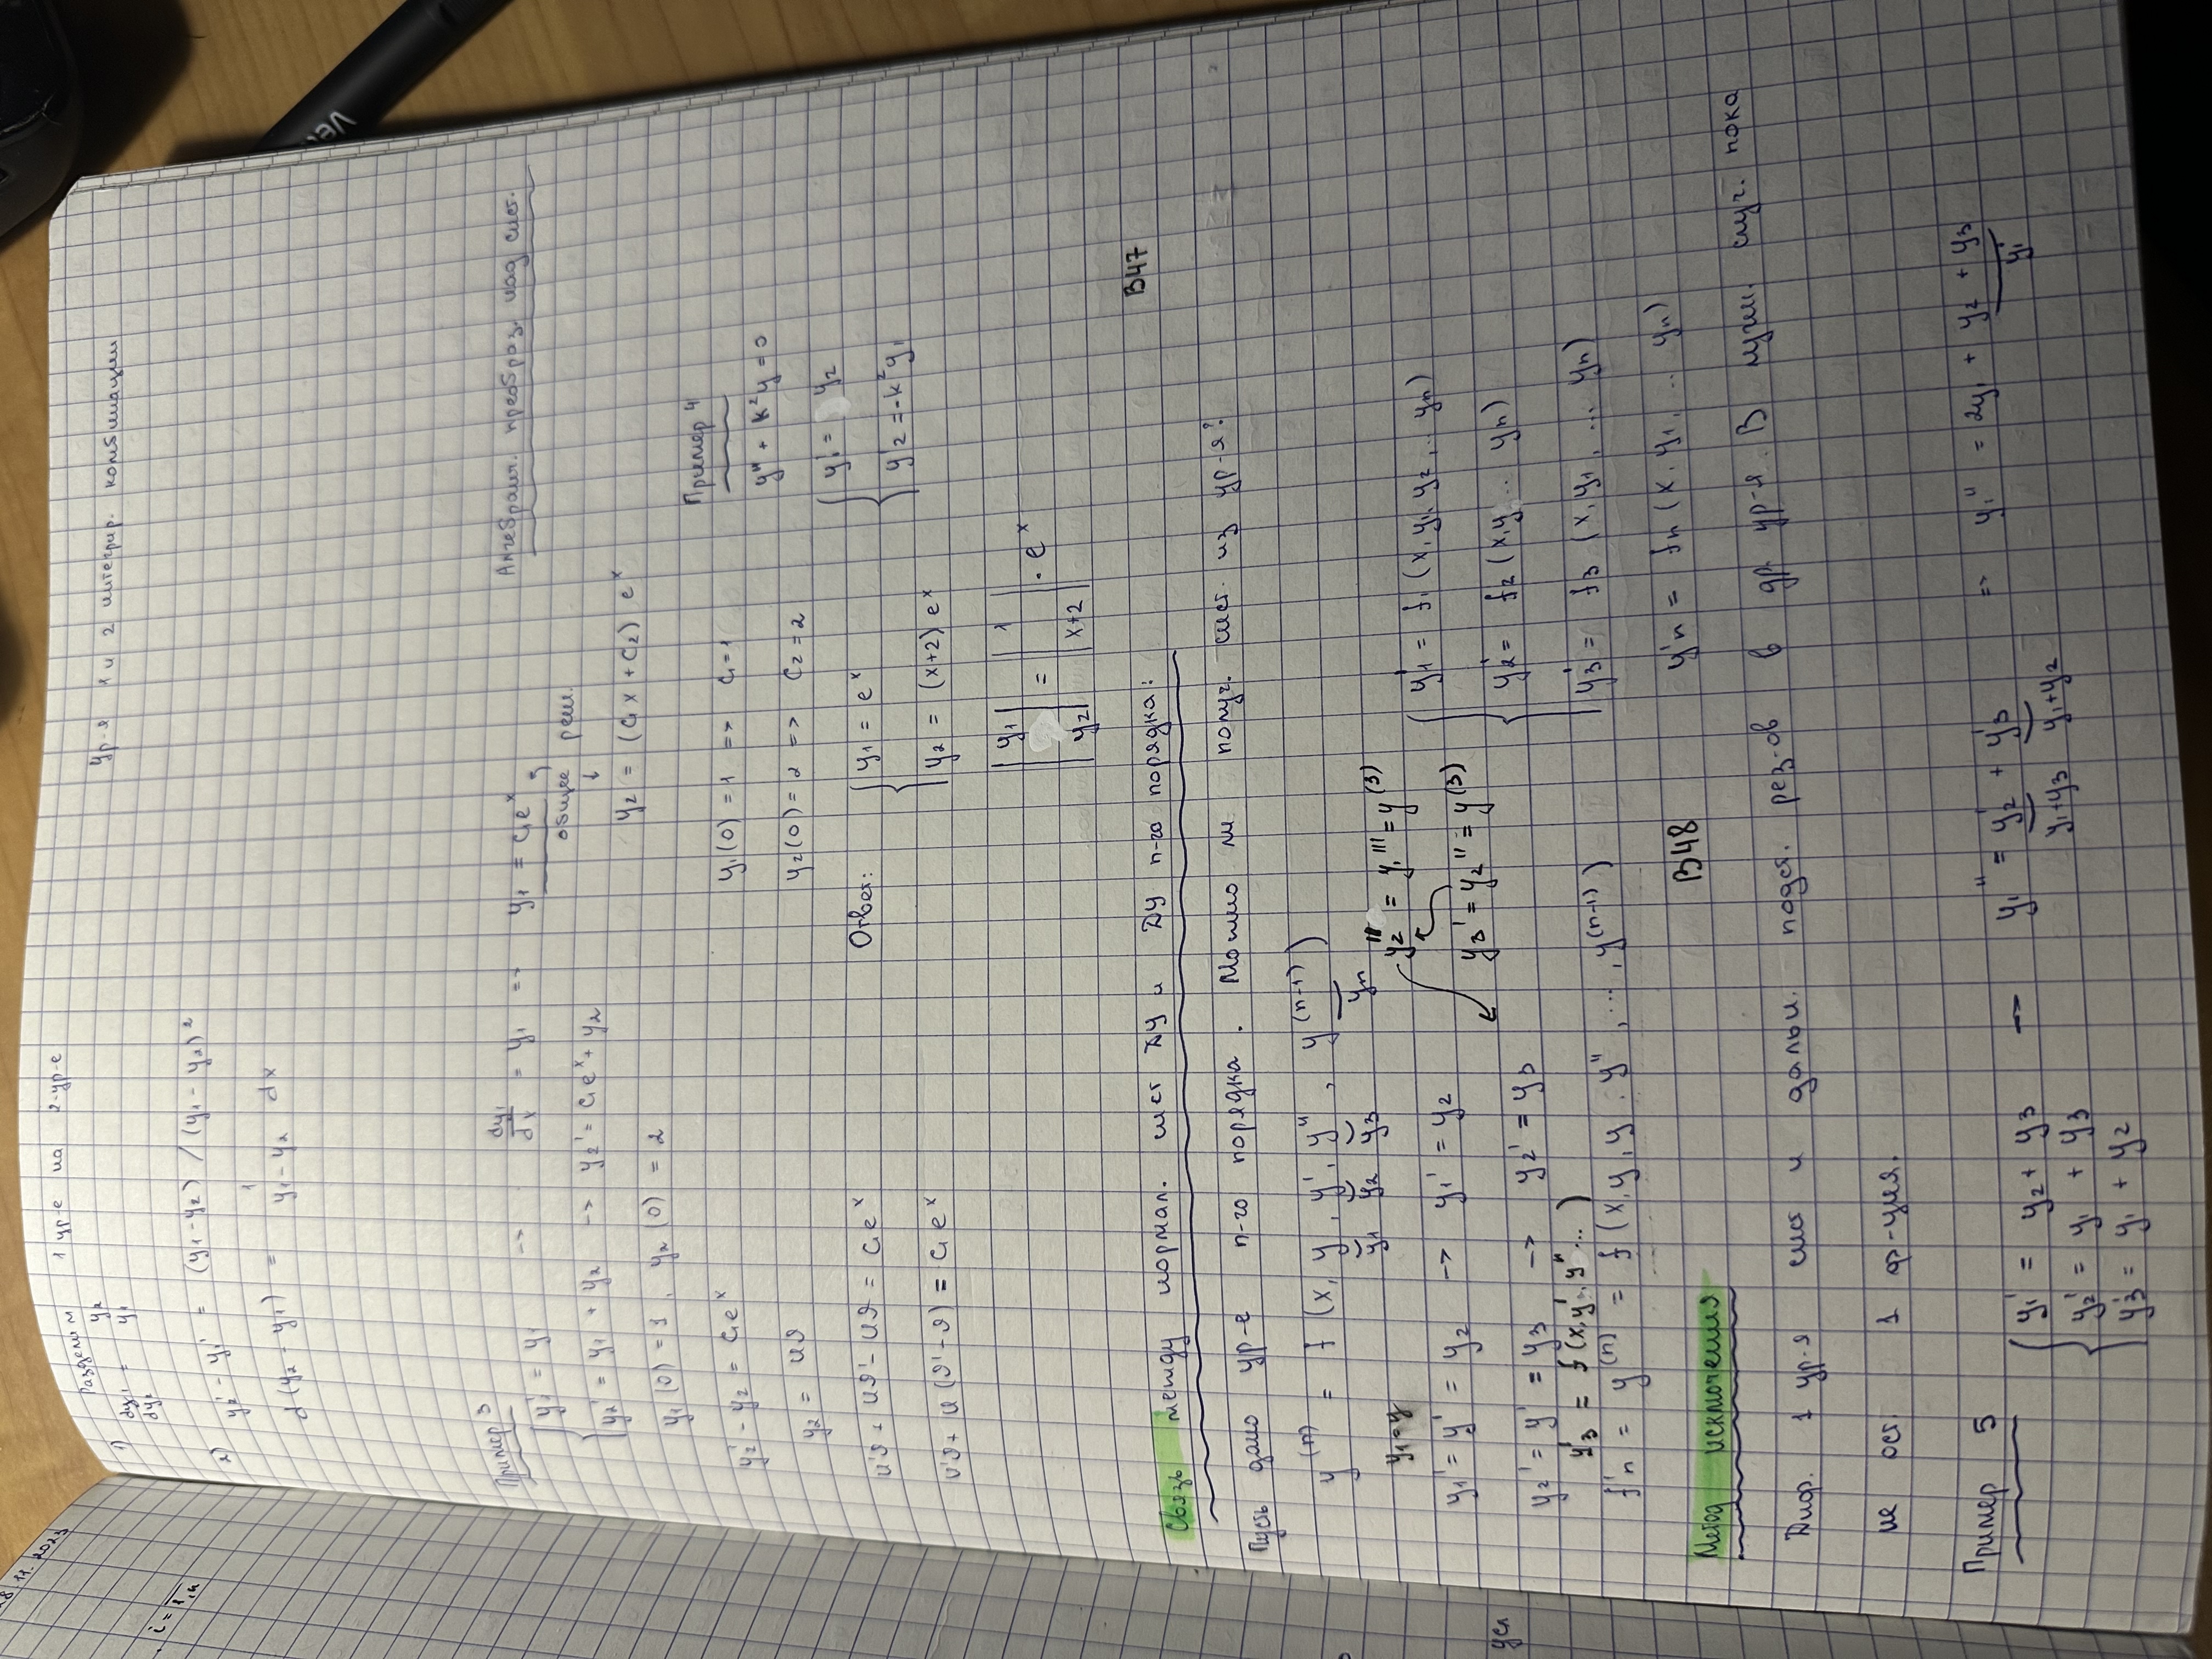 28.11.2023
i = 1,n
усл
Разделим 1 ур-е на 2-ур-е
1) dy1/dy2 = y2/y1
ур-я 1 и 2 интегрир. комбинации
2) y2' - y1' = (y1-y2) / (y1-y2)²
d(y2-y1) = 1/(y1-y2) dx
Пример 3
Алгебраич. преобраз. над сист.
{ y1' = y1 -> dy1/dx = y1 => y1 = C1e^x
общее реш.
y2' = y1 + y2 -> y2' = C1e^x + y2
y2 = (C1x + C2) e^x
y1(0) = 1, y2(0) = 2
y2' - y2 = C1e^x
y2 = uϑ
u'ϑ + uϑ' - uϑ = C1e^x
u'ϑ + u(ϑ'-ϑ) = C1e^x
y1(0) = 1 => C1=1
y2(0) = 2 => C2=2
Ответ: { y1 = e^x
y2 = (x+2) e^x
||y1 y2|| = ||1 x+2|| · e^x
Пример 4
y'' + k²y = 0
{ y1' = y2
y2' = -k²y1
B47
Связь между нормал. сист ДУ и ДУ n-го порядка:
Пусть дано ур-е n-го порядка. Можно ли получ. сист. из ур-я?
y^(n) = f (x, y, y', y'', y^(n-1))
y1 y2 y3 yn
y1=y
y1' = y' = y2 -> y1' = y2
y2''' = y1''' = y^(3)
y3' = y2'' = y^(3)
y2' = y' = y3 -> y2' = y3
y3' = f(x,y',y''...)
f'n = y^(n) = f(x,y,y,y'',...,y^(n-1))
{ y1' = f1 (x,y1,y2,.. yn)
y2' = f2 (x,y... yn)
y3' = f3 (x,y1,... yn)
y'n = fn (x,y1,.. yn)
B48
Метод исключения
Диф. 1 ур-я сист и дальн. подст. рез-ов в др. ур-я. В лучш. случ. пока
не ост. 1 ф-ция.
Пример 5
{ y1' = y2 + y3 -> y1'' = y2' + y3' => y1'' = 2y1 + y2 + y3
y1+y3 y1+y2 y1'
y2' = y1 + y3
y3' = y1 + y2
Ve